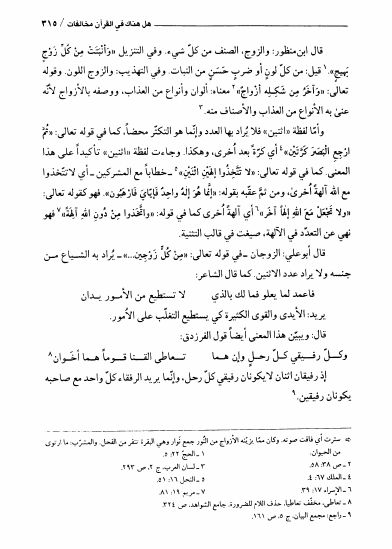 هل هناك في القرآن مخالفات / ٣١٥
قال ابن‌منظور: والزوج، الصنف من كلّ شيء. وفي التنزيل «وَأَنْبَتَتْ مِنْ كُلِّ زَوْجٍ
بَهِيجٍ».١ قيل: من كلّ لونٍ أو ضربٍ حَسَنٍ من النبات. وفي التهذيب: والزوج اللون. وقوله
تعالى: «وَآخَرُ مِن شَكْلِهِ أَزْوَاجٌ»٢ معناه: ألوان وأنواع من العذاب، ووصفه بالأزواج لأنّه
عنىٰ به الأنواع من العذاب والأصناف منه.٣
وأمّا لفظة «اثنين» فلا يُراد بها العدد وإنّما هو التكثّر محضاً، كما في قوله تعالى: «ثُمَّ
ارْجِعِ الْبَصَرَ كَرَّتَيْنِ»٤ أي كرّةً بعد أُخرى، وهكذا. وجاءت لفظة «اثنين» تأكيداً على هذا
المعنى. كما في قوله تعالى: «لا تَتَّخِذُوا إِلهَيْنِ اثْنَيْنِ»٥ ـ خطاباً مع المشركين ـ أي لا تتّخذوا
مع الله آلهةً أُخرىٰ، ومن ثمّ عقّبه بقوله: «إِنَّما هُوَ إِلهٌ واحِدٌ فَإِيّايَ فَارْهَبُونِ». فهو كقوله تعالى:
«ولا تَجْعَلْ مَعَ اللهِ إِلهاً آخَرَ»٦ أي آلهةً أُخرى كما في قوله: «واتَّخَذُوا مِنْ دُونِ اللهِ آلِهَةً»٧ فهو
نهي عن التعدّد في الآلهة، صيغت في قالب التثنية.
قال أبوعلي: الزوجان ـ في قوله تعالى: «مِنْ كُلٍّ زَوْجَيْنِ...» ـ يُراد به الشياع من
جنسه ولا يراد عدد الاثنين. كما قال الشاعر:
فاعمد لما يعلو فما لك بالذي لا تستطيع من الأمور يدان
يريد: الأيدي والقوى الكثيرة كي يستطيع التغلّب على الأمور.
قال: ويبيّن هذا المعنى أيضاً قول الفرزدق:
وكلّ رفيقي كلّ رحلٍ وإن هما تعاطى القنا قوماً هما أخَوان٨
إذ رفيقان اثنان لا يكونان رفيقي كلّ رحل، وإنّما يريد الرفقاء كلّ واحد مع صاحبه
يكونان رفيقين.٩
سترت أي فاقت صوته. وكان ممّا يزيّنه الأزواج من النَّور جمع نَوار وهي البقرة تنفر من الفحل. والمشرَب: ما ارتوى
من الحيوان. ١ ـ الحجّ ٢٢: ٥.
٢ ـ ص ٣٨: ٥٨. ٣ ـ لسان العرب، ج ٢، ص ٢٩٣.
٤ ـ الملك ٦٧: ٤. ٥ ـ النحل ١٦: ٥١.
٦ ـ الإسراء ١٧: ٣٩. ٧ ـ مريم ١٩: ٨١.
٨ ـ تعاطى، مخفّف تعاطيا، حذف اللام للضرورة. جامع الشواهد، ص ٣٢٤.
٩ ـ راجع: مجمع البيان، ج ٥، ص ١٦١.